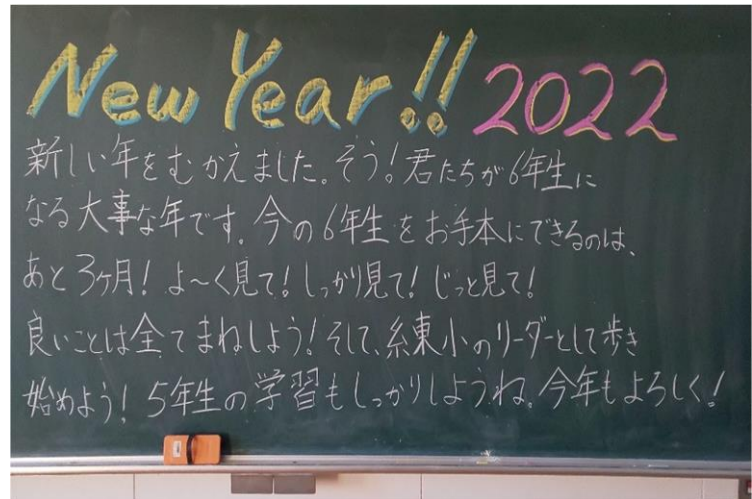 New Year!! 2022
新しい年をむかえました。そう！君たちが6年生に
なる大事な年です。今の6年生をお手本にできるのは、
あと3ヶ月！よ～く見て！しっかり見て！じっと見て！
良いことは全てまねしよう！そして、糸東小のリーダーとして歩き
始めよう！5年生の学習もしっかりしようね。今年もよろしく！